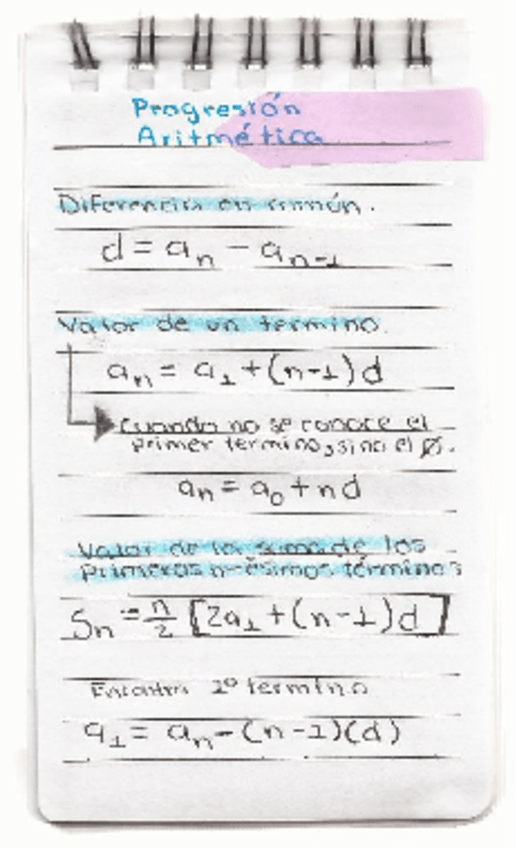 Progresión
Aritmética
Diferencia en común.
d = aₙ − aₙ₋₁
Valor de un termino.
aₙ = a₁ + (n-1)d
Cuando no se conoce el
primer termino, sino el Ø.
aₙ = a₀ + nd
Valor de la suma de los
Primeros n-ésimos términos
Sₙ = n/2 [2a₁ + (n-1)d]
Encontrar 1º termino
a₁ = aₙ - (n-1)(d)